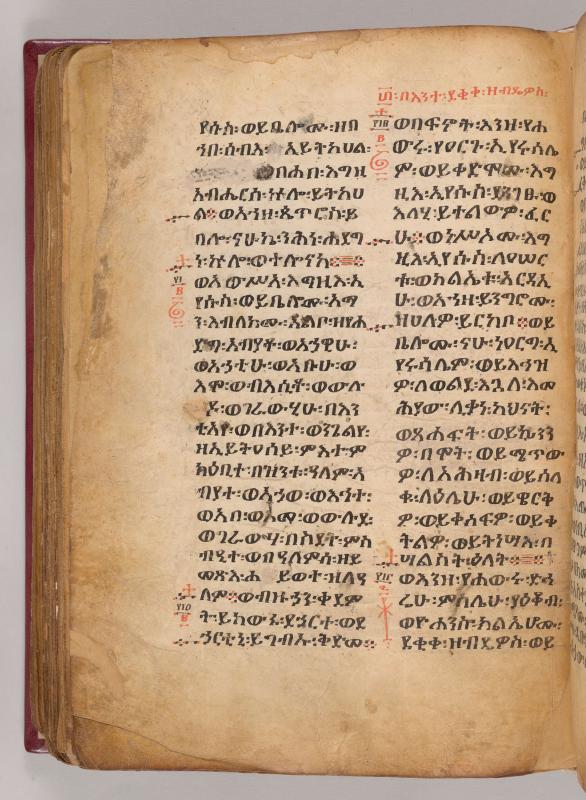 በእንተ፡ደቂቀ፡ዘብዴዎስ፡
የሱስ፡ወይቤሎሙ፡ዘበ
ኀበ፡ሰብእ፡ ኢይትከሀል፡
በኀበ፡እግዚ
አብሔርሰ፡ኵሎ፡ይትከሀ
ል፨ወእንዘ፡ጴጥሮስ፡ይ
ቤሎ፡ናሁኬ፡ንሕነ፡ኀደግ
ነ፡ኵሎ፡ወተሎናከ፨
ወአውሥአ፡እግዚእ፡ኢ
የሱስ፡ወይቤሎሙ፡አማ
ን፡እብለክሙ፡አልቦ፡ዘየኀ
ድግ፡አብያተ፡ወአኀዊሁ፡
ወአኃቲሁ፡ወአቡሁ፡ወ
እሞ፡ወብእሲቶ፡ወውሉ
ዶ፡ወገራውሂሁ፡በእን
ቲአየ፡ወበእንተ፡ወንጌልየ፡
ዘኢይትዐሰይ፡ምእተ፡ም
ክዕቢተ፡በዝንቱ፡ዓለም፡አ
ብያተ፡ወአኃወ፡ወአኃተ፡
ወአበ፡ወእመ፡ወውሉደ፡
ወገራውሃ፡በስደት፡ምስ
ብዒተ፡ወበዓለምሰ፡ዘይ
መጽእ፡ሕይወተ፡ዘለዓ
ለም፨ወብዙኃን፡ቀደም
ት፡ይከውኑ፡ደኃርተ፡ወደ
ኃርቲኒ፡ይግብኡ፡ቅድመ፨
ወበፍኖት፡እንዘ፡የሐ
ውሩ፡የዐርጉ፡ኢየሩሳሌ
ም፡ወይቀድሞሙ፡እግ
ዚእ፡ኢየሱስ፡ደንገፁ፡ወ
እለሂ፡ይተልውዎ፡ፈር
ሁ፨ወነሥኦሙ፡እግ
ዚእ፡ኢየሱስ፡ለዐሠር
ቱ፡ወክልኤቱ፡አርዳኢ
ሁ፡ወእንዘ፡ይነግሮሙ፡
ዘሀለዎ፡ይርከቦ፨ወይ
ቤሎሙ፡ናሁ፡ነዐርግ፡ኢ
የሩሳሌም፡ወይእኅዝ
ዎ፡ለወልደ፡እጓለ፡እመ
ሕያው፡ሊቃነ፡ካህናት፡
ወጸሐፍት፡ወይኴንን
ዎ፡በሞት፡ወይሜጥው
ዎ፡ለአሕዛብ፡ወይሳለ
ቁ፡ለዕሌሁ፡ወይዌርቅ
ዎ፡ወይቀሥፍዎ፡ወይቀ
ትልዎ፡ወይትነሣእ፡በ
ሣልስት፡ዕለት፨
ወእንዘ፡የሐውሩ፡ድኅ
ሬሁ፡ምስሌሁ፡ያዕቆብ፡
ወዮሐንስ፡ክልኤሆሙ፡
ደቂቀ፡ዘብዴዎስ፡ወይ